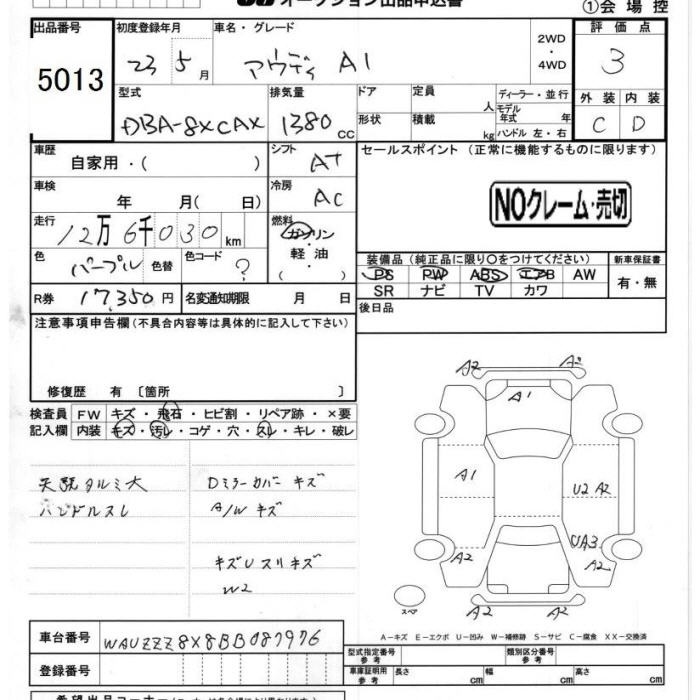 オークション出品申込書
①会場控
出品番号 5013
初度登録年月 23 5月
車名・グレード アウディ A1
2WD・4WD
評価点 3
型式 DBA-8XCAX
排気量 1380cc
ドア 形状
定員 人
積載 kg
ディーラー・並行
モデル年式 年
ハンドル 左・右
外装 C
内装 D
車歴 自家用・( )
シフト AT
セールスポイント (正常に機能するものに限ります)
車検 年 月(日)
冷房 AC
NOクレーム・売切
走行 12万6千030km
燃料 ガソリン・軽油・( )
色 パープル 色替
色コード ?
装備品(純正品に限り〇をつけてください)
PS PW ABS エアB AW
SR ナビ TV カワ
新車保証書 有・無
R券 17,350円
名変通知期限 月 日
後日品
注意事項申告欄(不具合内容等は具体的に記入して下さい)
修復歴 有 [箇所 ]
検査員記入欄
FW キズ・飛石・ヒビ割・リペア跡・×要
内装 キズ・汚レ・コゲ・穴・スレ・キレ・破レ
天張タルミ大
ハンドルスレ
Dミラーカバーキズ
A/Wキズ
キズUスリキズ
W2
A2 A2
A1
A1
U2 A2
UA3
A2
A2
A2 A2
スペア
A−キズ E−エクボ U−凹み W−補修跡 S−サビ C−腐食 XX−交換済
車台番号 WAUZZZ8X8BB087976
登録番号
型式指定番号 参考
類別区分番号 参考
車庫証明用 参考
長さ cm
幅 cm
高さ cm